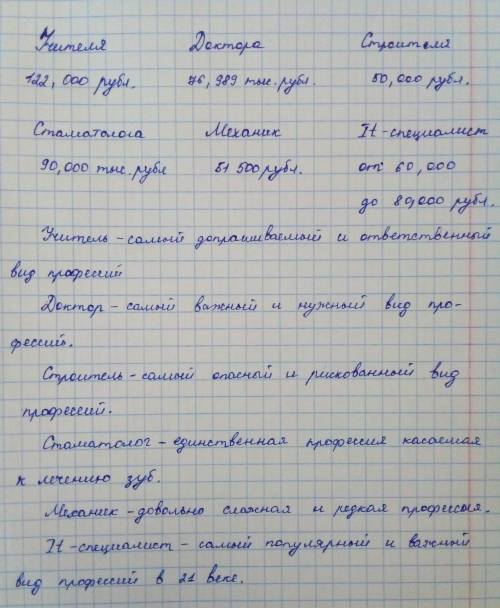 Учителя Доктора Строителя
122,000 рубл. 76,989 тыс. рубл. 50,000 рубл.
Стаматолога Механик It-специалист
90,000 тыс. рубл 51 500 рубл. от 60,000
до 80,000 рубл.
Учитель - самый допрашиваемый и ответственный
вид профессий
Доктор - самый важный и нужный вид про-
фессий.
Строитель - самый опасный и рискованный вид
профессий.
Стаматолог - единственная профессия касаемая
к лечению зуб.
Механик - довольно сложная и редкая профессия.
It-специалист - самый популярный и важный
вид профессий в 21 веке.